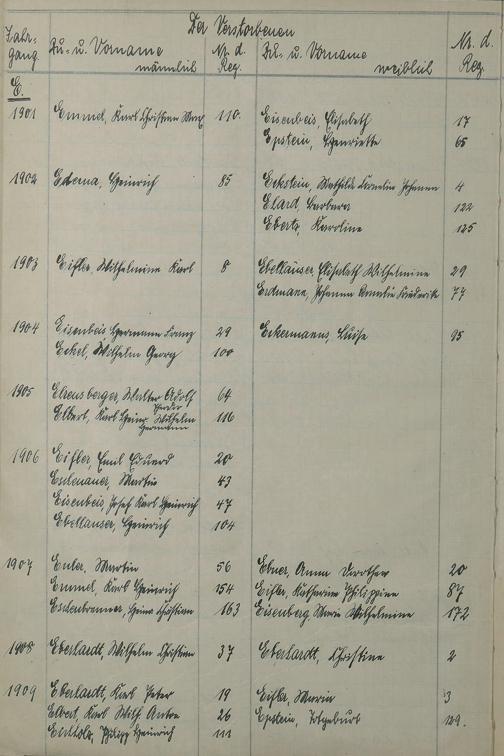 Der Verstorbenen
Jahr-
gang. Zu- u. Vorname männlich Nr. d. Reg. Zu- u. Vorname weiblich Nr. d. Reg.
E.
1901 Emmel, Karl Christian Max 110. Eisenbeis, Elisabeth 17
Epstein, Henriette 65
1902 Heinrich 85 Eckstein, Mathilde Cornelia Johanna 4
Elard, Barbara 122
Ebertz, Karoline 125
1903 Eifler, Wilhelmine Karl 8 Ebelhäuser Elisabeth Wilhelmine 29
Erdmann, Johanna Amalie Friederike 77
1904 Eisenbeis Hermann Franz 29 Eckermanns, Luise 95
Eckel, Wilhelm Georg 100
1905 Ehrensberger, Walter Adolf 64
Elbert, Karl Heinz Wilhelm 116
Hermann
1906 Eifler, Emil Eduard 20
Eschenauer, Martin 43
Eisenbeis, Josef Karl Heinrich 47
Ebelhäuser, Heinrich 104
1907 Euler, Martin 56 Ebner, Anna Dorothea 20
Emmel, Karl Heinrich 154 Eifler, Katharina Philippine 87
Eschenbrenner, Heinr. Christian 163 Eisenberg Maria Wilhelmine 172
1908 Eberhardt, Wilhelm Christian 37 Eberhardt, Christine 2
1909 Eberhardt, Karl Peter 19 Eifler, Maria 3
Elbert, Karl Wilh. Anton 26 Epstein, Totgeburt 129.
Philipp Heinrich 111